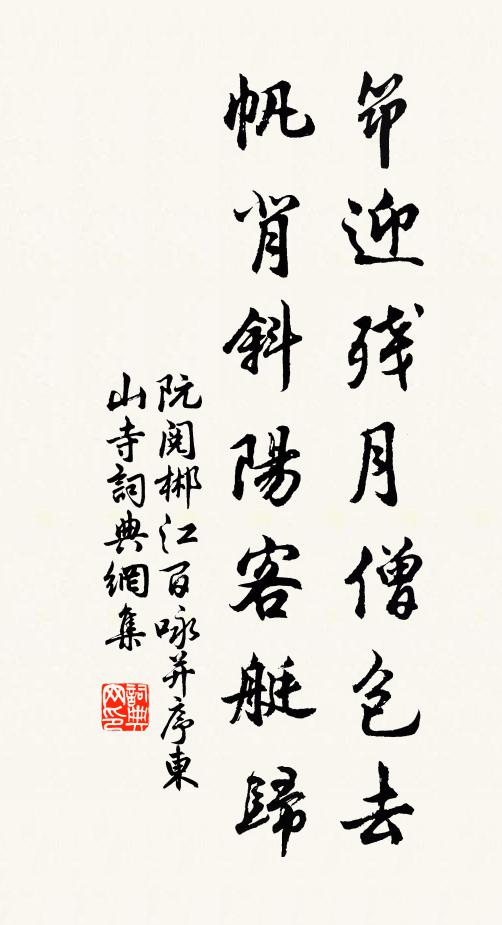 筇迎残月僧包去
帆背斜陽客艇歸
阮閱郴江百咏并序東
山寺詞典網集
詞典
网印